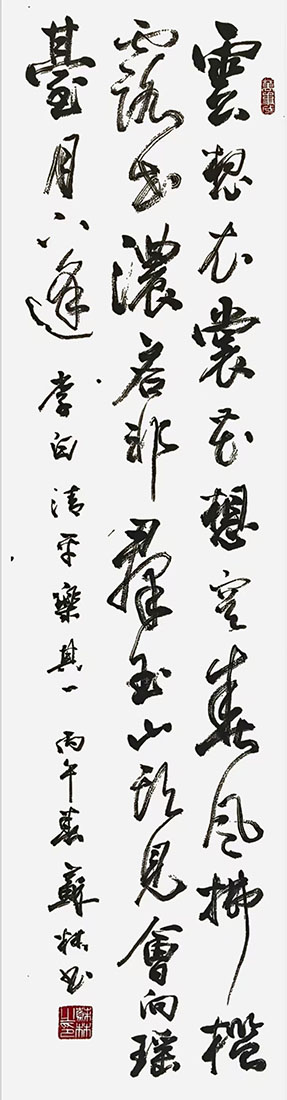 雲想衣裳花想容春風拂檻
露華濃若非羣玉山頭見會向瑶
臺月下逢 李白清平樂其一 丙午春蘇林書
蘇林之印